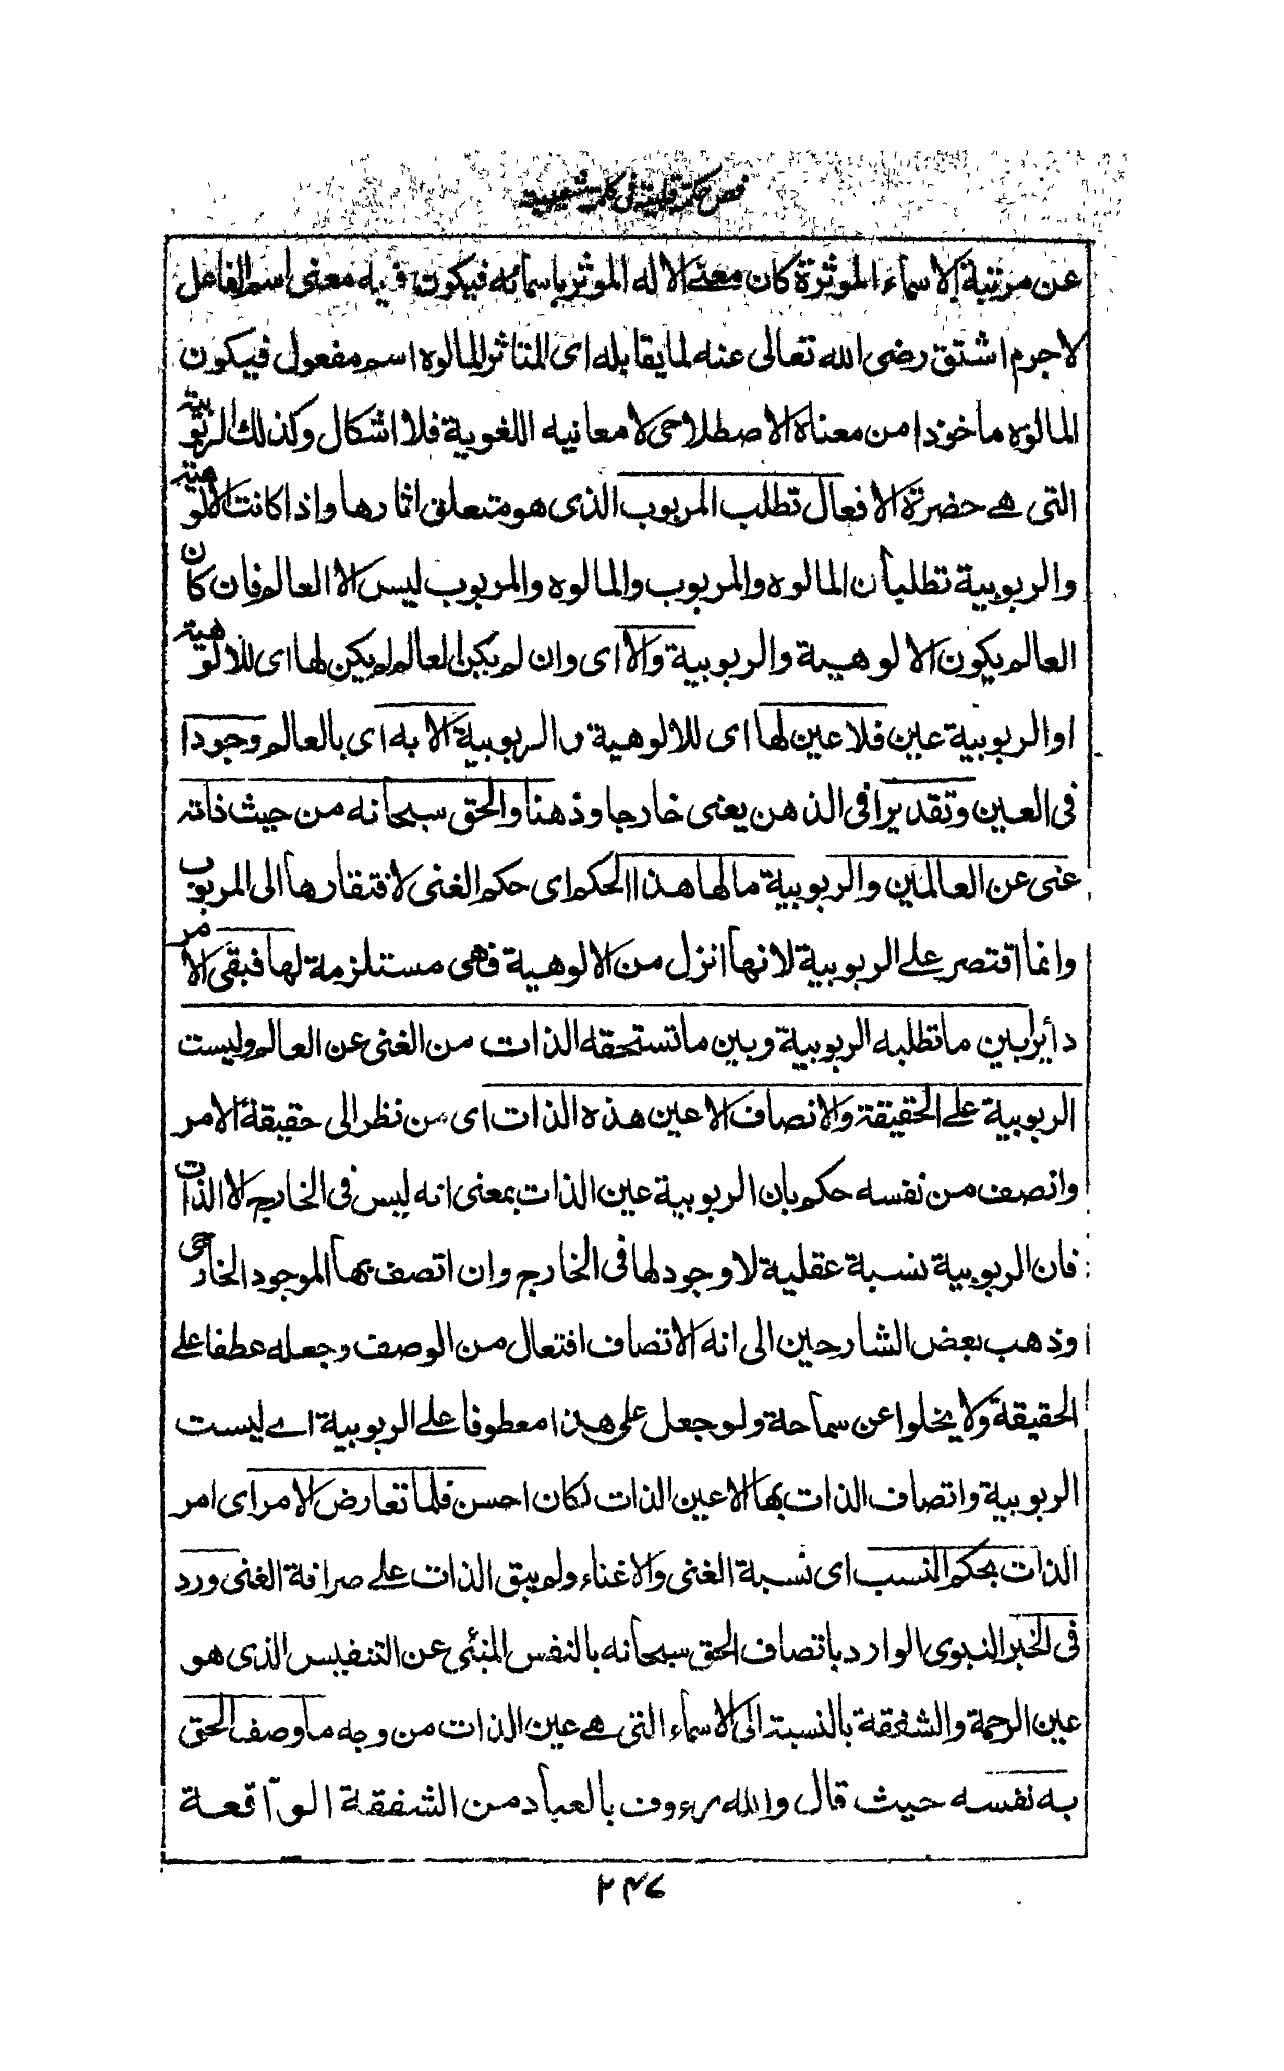 فص حكمة قلبية فى كلمة شعيبية
عن مرتبة الاسماء الموثرة كان معنے الاله الموثر باسمائه فيكون فيه معنى اسم الفاعل
لاجرم اشتق رضى الله تعالى عنه لما يقابله اى المتاثر المالوه اسم مفعول فيكون
المالوه ماخوذا من معناه الاصطلاحى لا معانيه اللغوية فلا اشكال وكذلك الربوبية
التى هے حضرة الافعال تطلب المربوب الذى هو متعلق اثارها واذا كانت الالوهية
والربوبية تطلبان المالوه والمربوب والمالوه والمربوب ليس الا العالم فان كان
العالم يكون الالوهية والربوبية والا اى وان لم يكن العالم لم يكن لها اى للالوهية
او الربوبية عين فلا عين لها اى للالوهية والربوبية الا به اى بالعالم وجودا
فى العين وتقديرا فى الذهن يعنى خارجا وذهنا والحق سبحانه من حيث ذاته
غنى عن العالمين والربوبية مالها هذا الحكم اى حكم الغنى لافتقارها الى المربوب
وانما اقتصر علے الربوبية لانها انزل من الالوهية فهى مستلزمة لها فبقى الامر
دايرا بين ما تطلبه الربوبية وبين ما تستحقه الذات من الغنى عن العالم وليست
الربوبية علے الحقيقة والانصاف الا عين هذه الذات اى من نظر الى حقيقة الامر
وانصف من نفسه حكم بان الربوبية عين الذات بمعنى انه ليس فى الخارج الا الذات
فان الربوبية نسبة عقلية لا وجود لها فى الخارج وان اتصف بها الموجود الخارجى
وذهب بعض الشارحين الى انه الاتصاف افتعال من الوصف وجعله عطفا علے
الحقيقة ولا يخلوا عن سماحة ولو جعل على هذا معطوفا علے الربوبية اے ليست
الربوبية واتصاف الذات بها الا عين الذات لكان احسن فلما تعارض الامر اى امر
الذات بحكم النسب اى نسبة الغنى والاغناء ولم يبق الذات علے صرافة الغنى ورد
فى الخبر النبوى الوارد باتصاف الحق سبحانه بالنفس المنبئى عن التنفيس الذى هو
عين الرحمة والشفقة بالنسبة الى الاسماء التى هے عين الذات من وجه ما وصف الحق
به نفسه حيث قال والله رءووف بالعباد من الشفقة الواقعة
۲۴۷